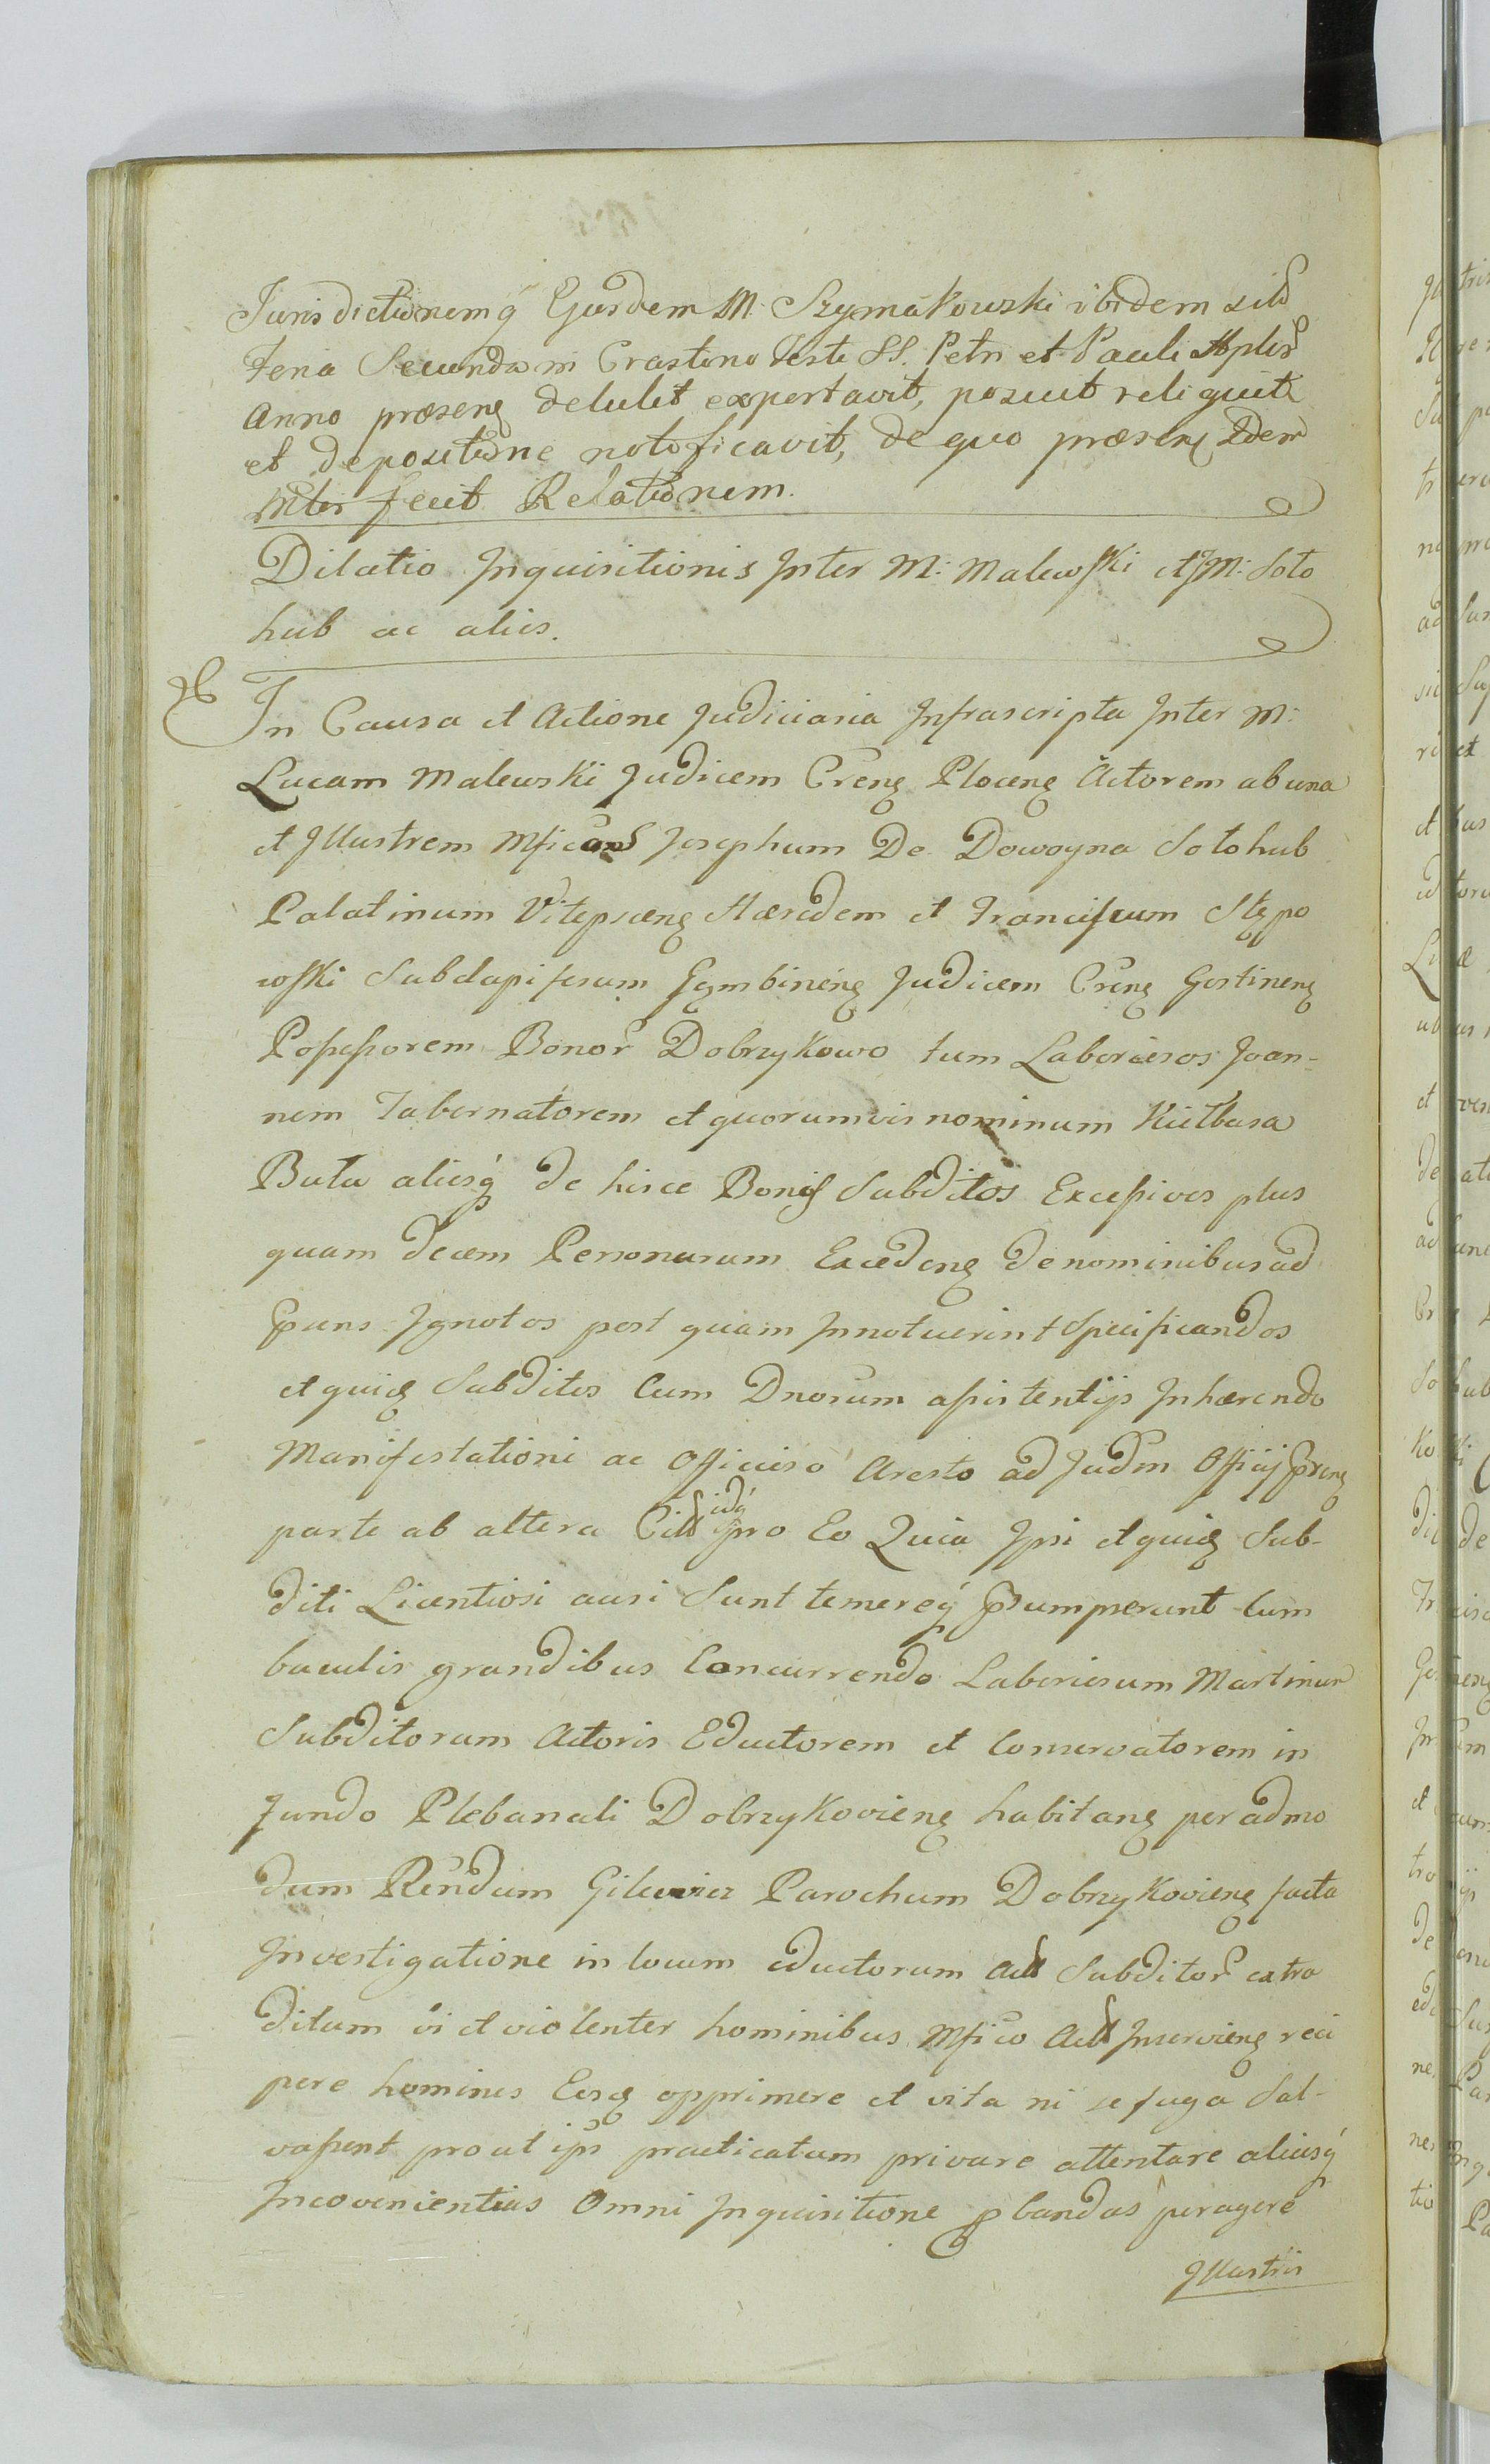 Jurisdictionemq́ Ejusdem M. Szymakowski ibidem sit
Feria Secunda in Crastino Festi SS. Petri et Pauli Aplor
Anno præsenȩ detulit exportavit, posuit reliquit
et depositione notificavit, de quo præsenȩ Idem
Mter fecit Relationem.
Dilatio Inquisitionis Inter M: Malewski et JM: Soło
hub ac alios.
In Causa et Actione Judiciaria Infrascripta Inter M:
Lucam Malewski Judicem Crenȩ Plocenȩ Actorem ab una
et Illustrem Mficum Josephum De Dowoyna Sołohub
Palatinum Vitepscenȩ Hæredem et Franciscum Stępo
wski Subdapiferum Gymbinenȩ Judicem Crenȩ Gostinenȩ
Possessorem Bonor Dobrzykowo tum Laboriosos Joan-
nem Tabernatorem et quorumvis nominum Kiełbasa
Buta aliosq́ de hisce Bonis Subditos Excessivos plus
quam decem Personarum Excedenȩ de nominibus ad
Pæns Ignotos post quam Innotuerint Specificandos
et quidȩ Subditos Cum Dnorum assistentijs Inhærendo
Manifestationi ac Officioso Aresto ad Judm Officij Præsenȩ
parte ab altera Citt idq́ pro Eo Quia Ipsi et quidȩ Sub-
diti Licentiosi ausi Sunt temereq́ Præsumpserunt Cum
baculis grandibus Concurrendo Laboriosum Martinum
Subditorum Actoris Eductorem et Conservatorem in
Fundo Plebanali Dobrzykovienȩ habitanȩ per admo
dum Rendum Gilewicz Parochum Dobrzykovienȩ facta
Investigatione in locum eductorum Actt Subditor extra
ditum vi et violenter hominibus Mfico Actt Inservienȩ reci
pere homines Eosȩ opprimere et vita ni se fuga Sal-
vassent prout ips practicatum privare attentare aliasq́
Incovenientias Omni Inquisitione pbandas peragere
Illustris